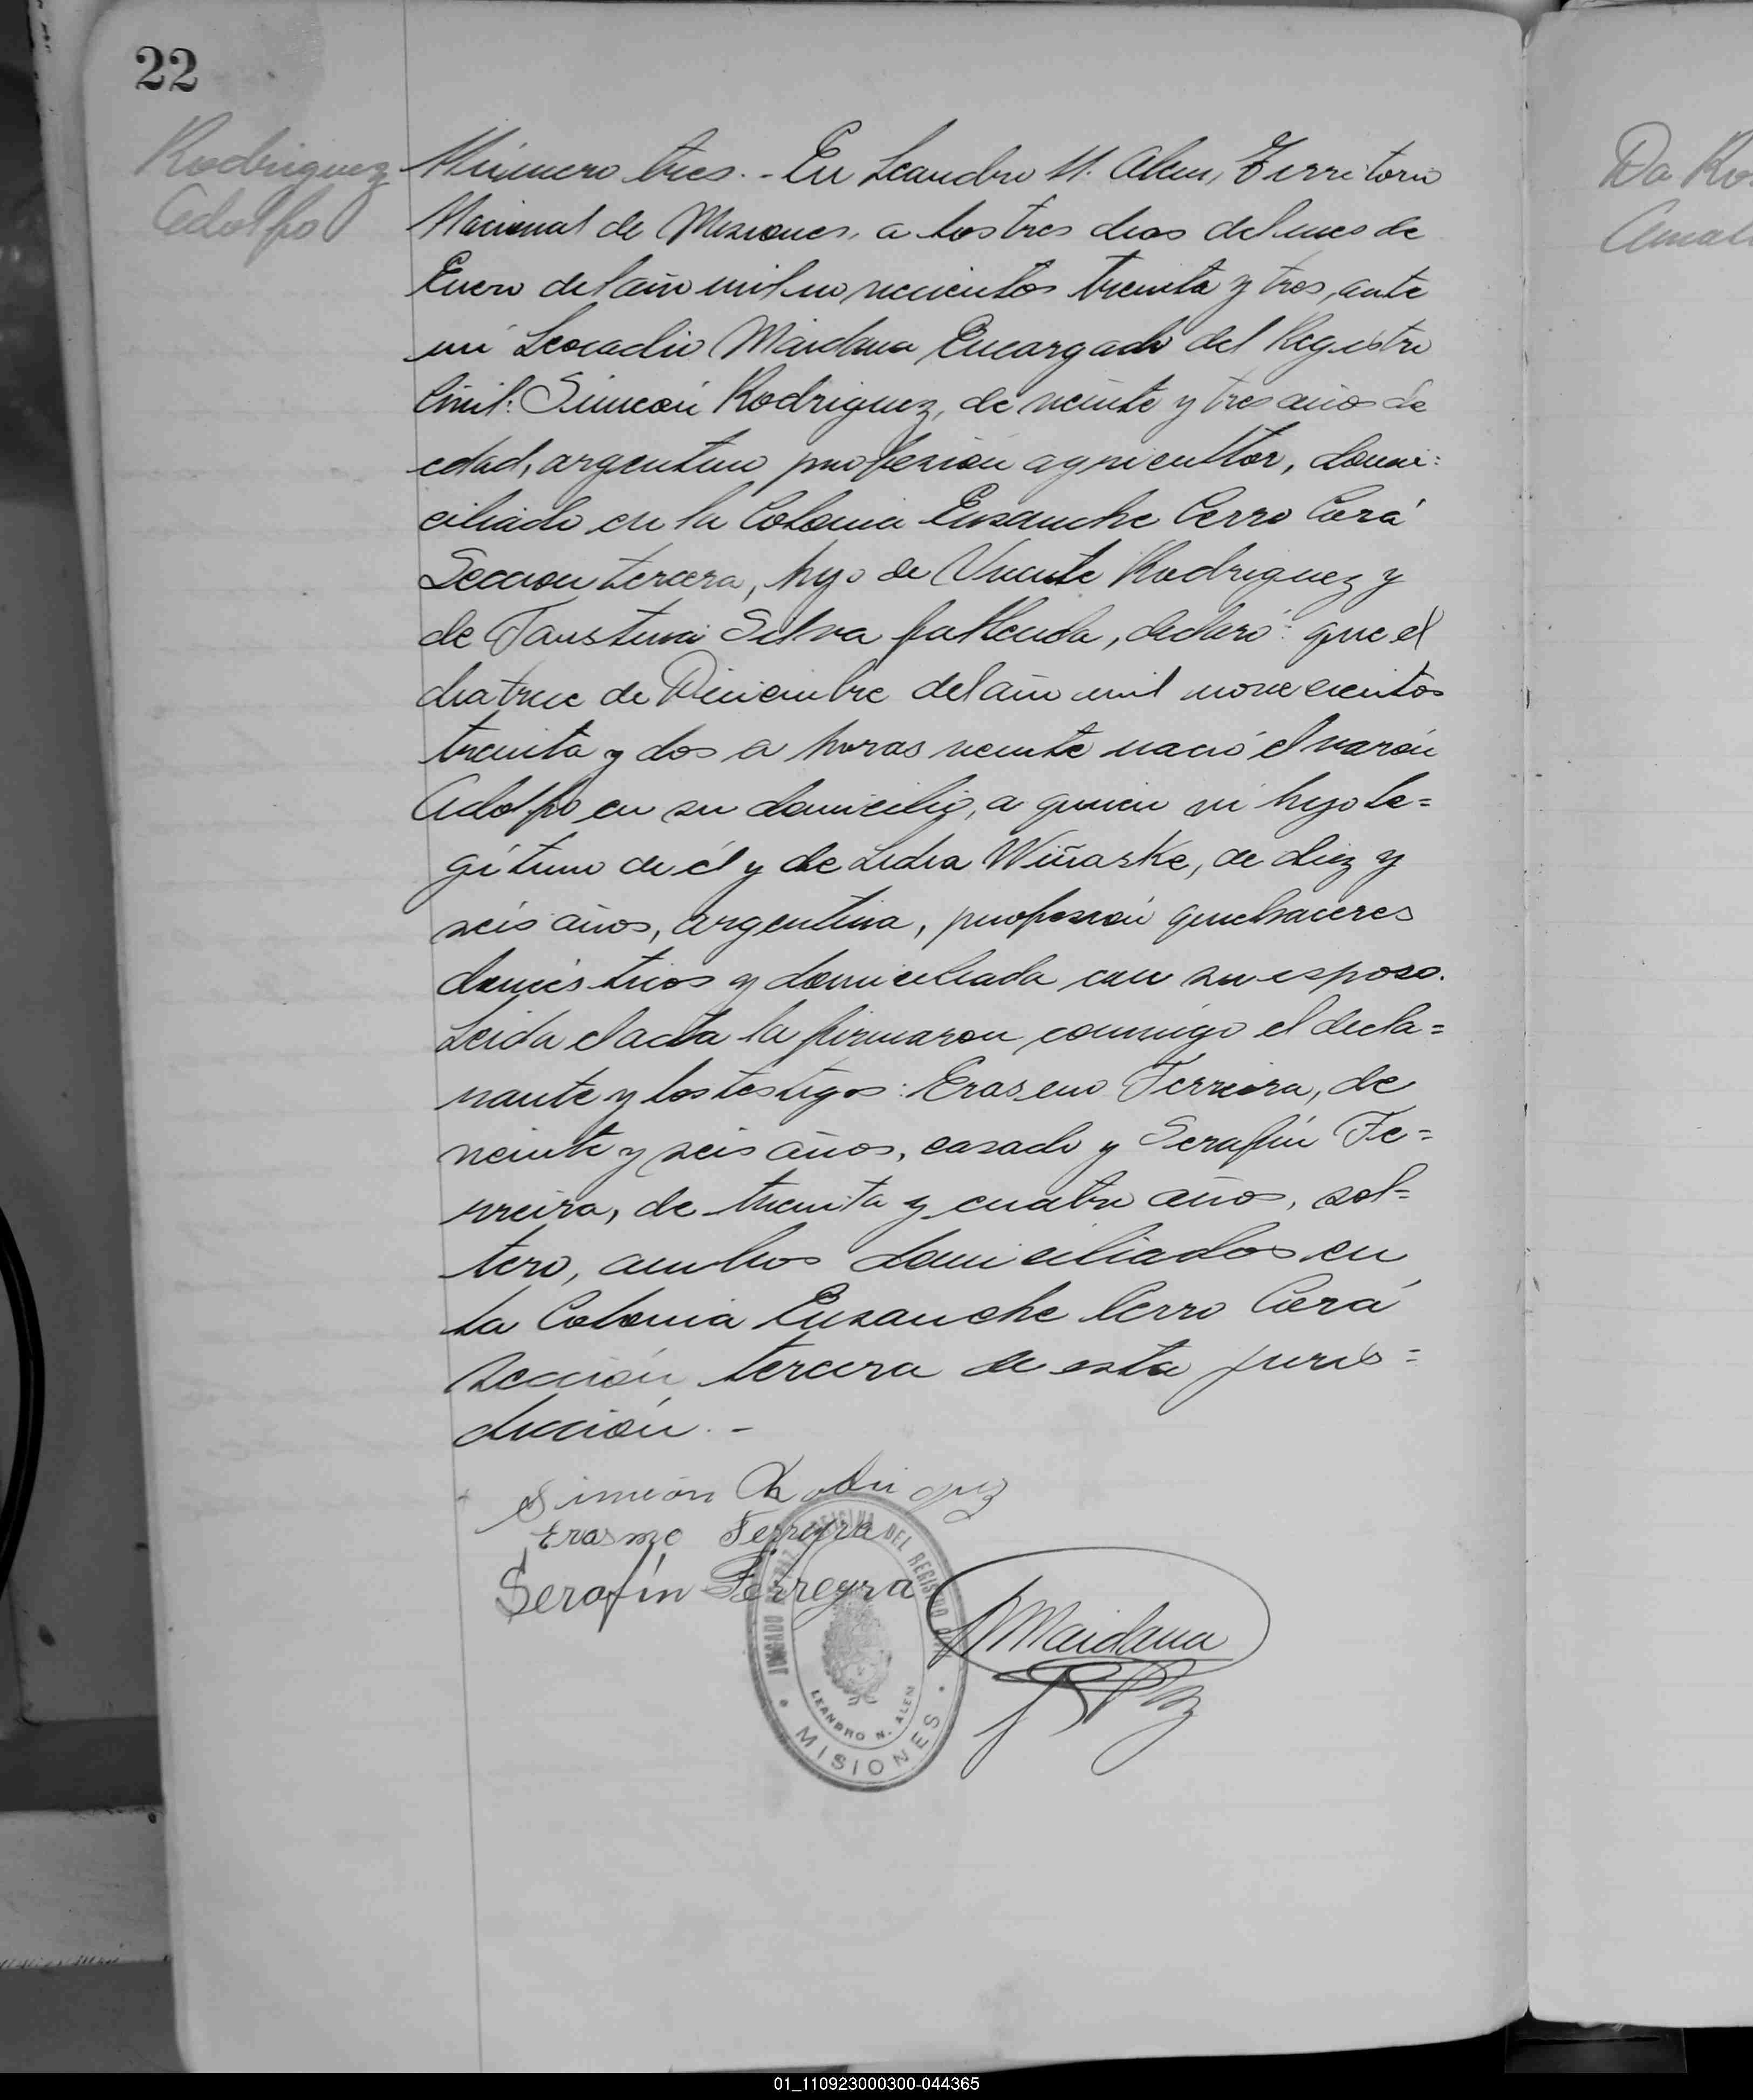 22
Rodriguez
Adolfo
Número tres.- En Leandro N. Alem, Territorio
Nacional de Misiones, a los tres dias del mes de
Enero del año mil novecientos treinta y tres, ante
mi Leocadio Maidana Encargado del Registro
Civil: Simeón Rodriguez, de veinte y tres años de
edad, argentino profesión agricultor, domi:
ciliado en la Colonia Ensanche Cerro Corá
Seccion tercera, hijo de Vicente Rodriguez y
de Faustina Silva fallecida, declaró: que el
dia trece de Diciembre del año mil novecientos
treinta y dos a horas veinte nació el varón
Adolfo en su domicilio, a quien vi hijo le=
gítimo de él y de Lidia Wiñarske, de diez y
seis años, argentina, profesión quehaceres
domésticos y domiciliada con su esposo.
Leida el acta la firmaron conmigo el decla=
rante y los testigos: Erasmo Ferreira, de
veinte y seis años, casado y Serafín Fe=
rreira, de treinta y cuatro años, sol=
tero, ambos domiciliados en
la Colonia Ensanche Cerro Corá
sección tercera de esta juris=
dicción.-
Simeón Rodriguez
Erasmo Ferreyra
Serafín Ferreyra
Maidana
JUZGADO DE PAZ OFICINA DEL REGISTRO
LEANDRO N. ALEM
MISIONES
Da Ro
Amal
01_110923000300-044365